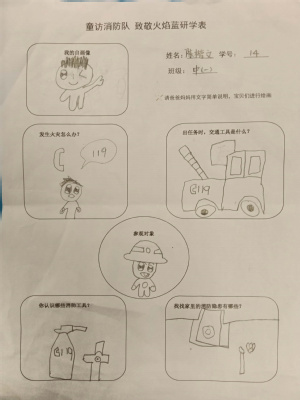 童访消防队 致敬火焰蓝研学表
我的自画像
姓名: 学号: 14
班级: 中(一)
请爸爸妈妈用文字简单说明,宝贝们进行绘画
发生火灾怎么办?
119
出任务时,交通工具是什么?
119
参观对象
你认识哪些消防工具?
119
我找家里的消防隐患有哪些?